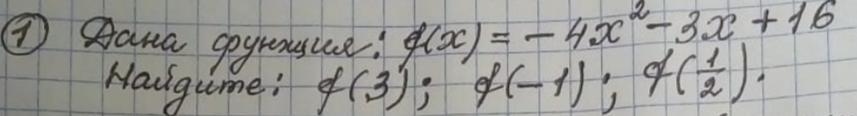 ① Дана функция: f(x) = - 4x² - 3x + 16
Найдите: f(3); f(-1); f(1/2).